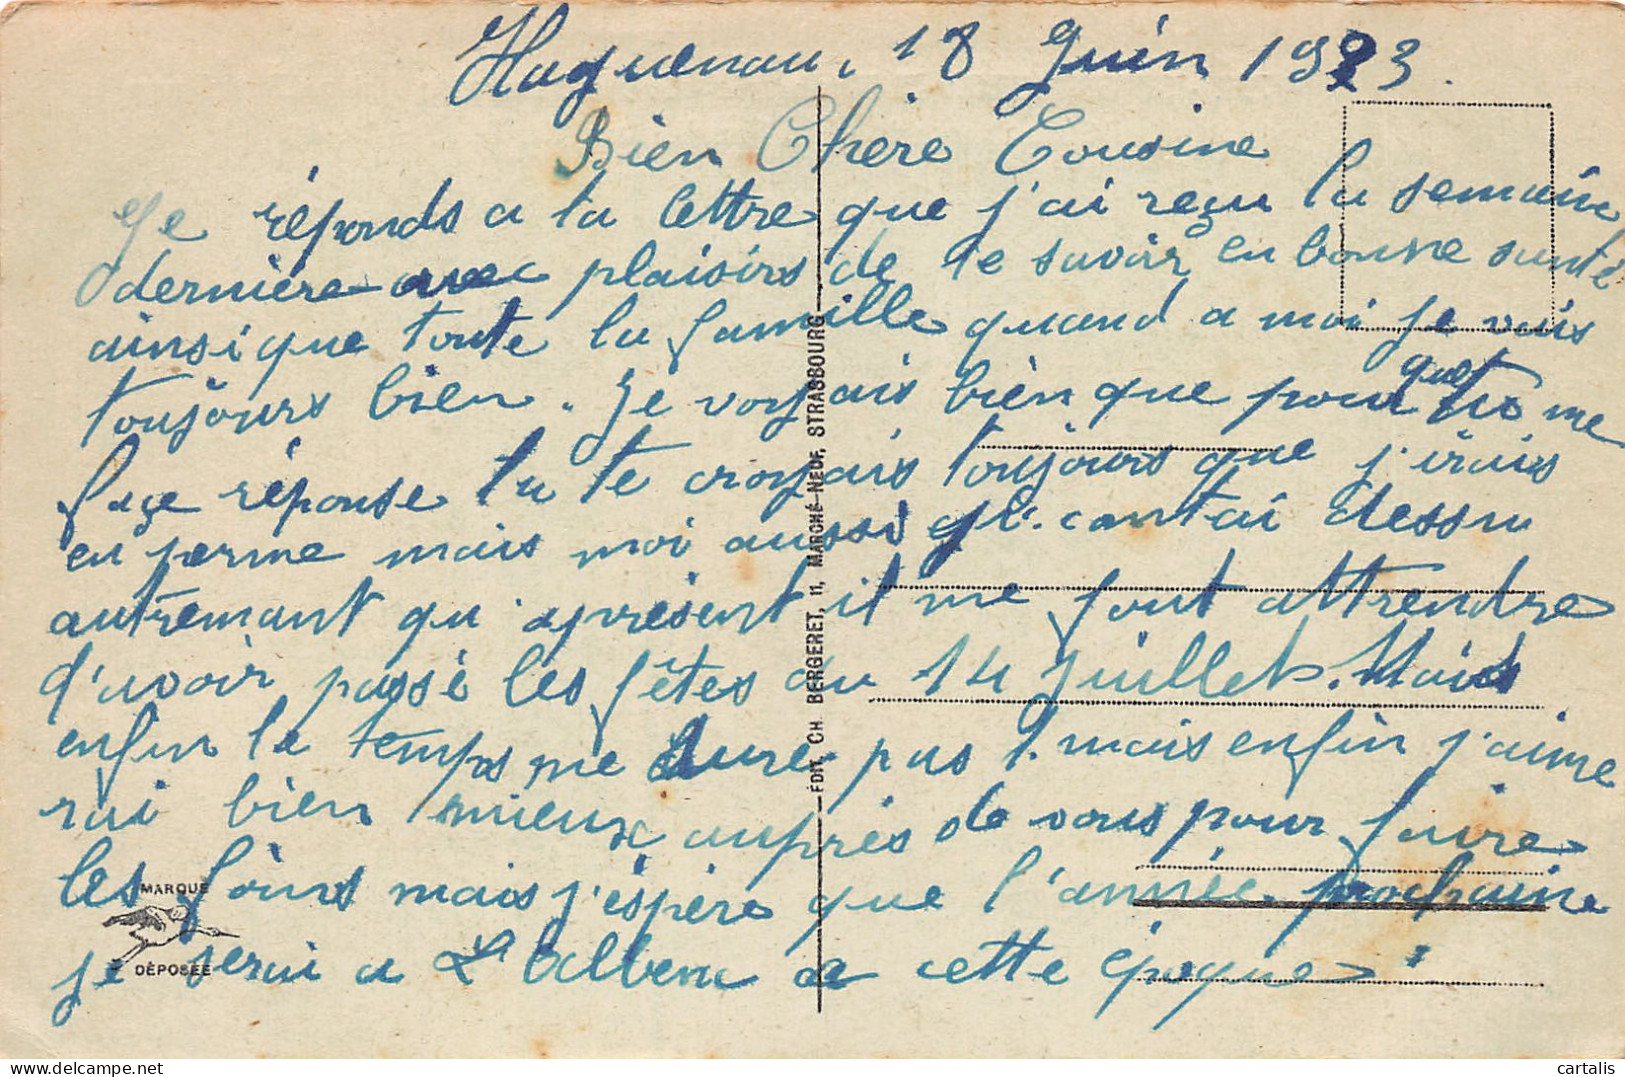 Haguenau, 18 Juin 1923.
Bien Chère Cousine
Je réponds a ta lettre que j'ai reçu la semaine
dernière avec plaisirs de te savoir en bonne santé
ainsi que toute la famille quand a moi je vais
toujours bien. Je voyais bien que pour que tu me
façe réponse tu te croyais toujours que j'irais
en perme mais moi aussi j'i contai dessu
autremant qu'apresent il me fout attrendre
d'avoir passé les fêtes du 14 Juillet. Mais
enfin le temps me dure pas t. mais enfin j'aime
rai bien mieux auprès de vous pour faire
les foins mais j'éspère que l'année prochaine
je serai a L'Albenc a cette époque.
EDIT. CH. BERGERET, 11, MARCHÉ-NEUF, STRASBOURG
MARQUE
DÉPOSÉE
cartalis
www.delcampe.net